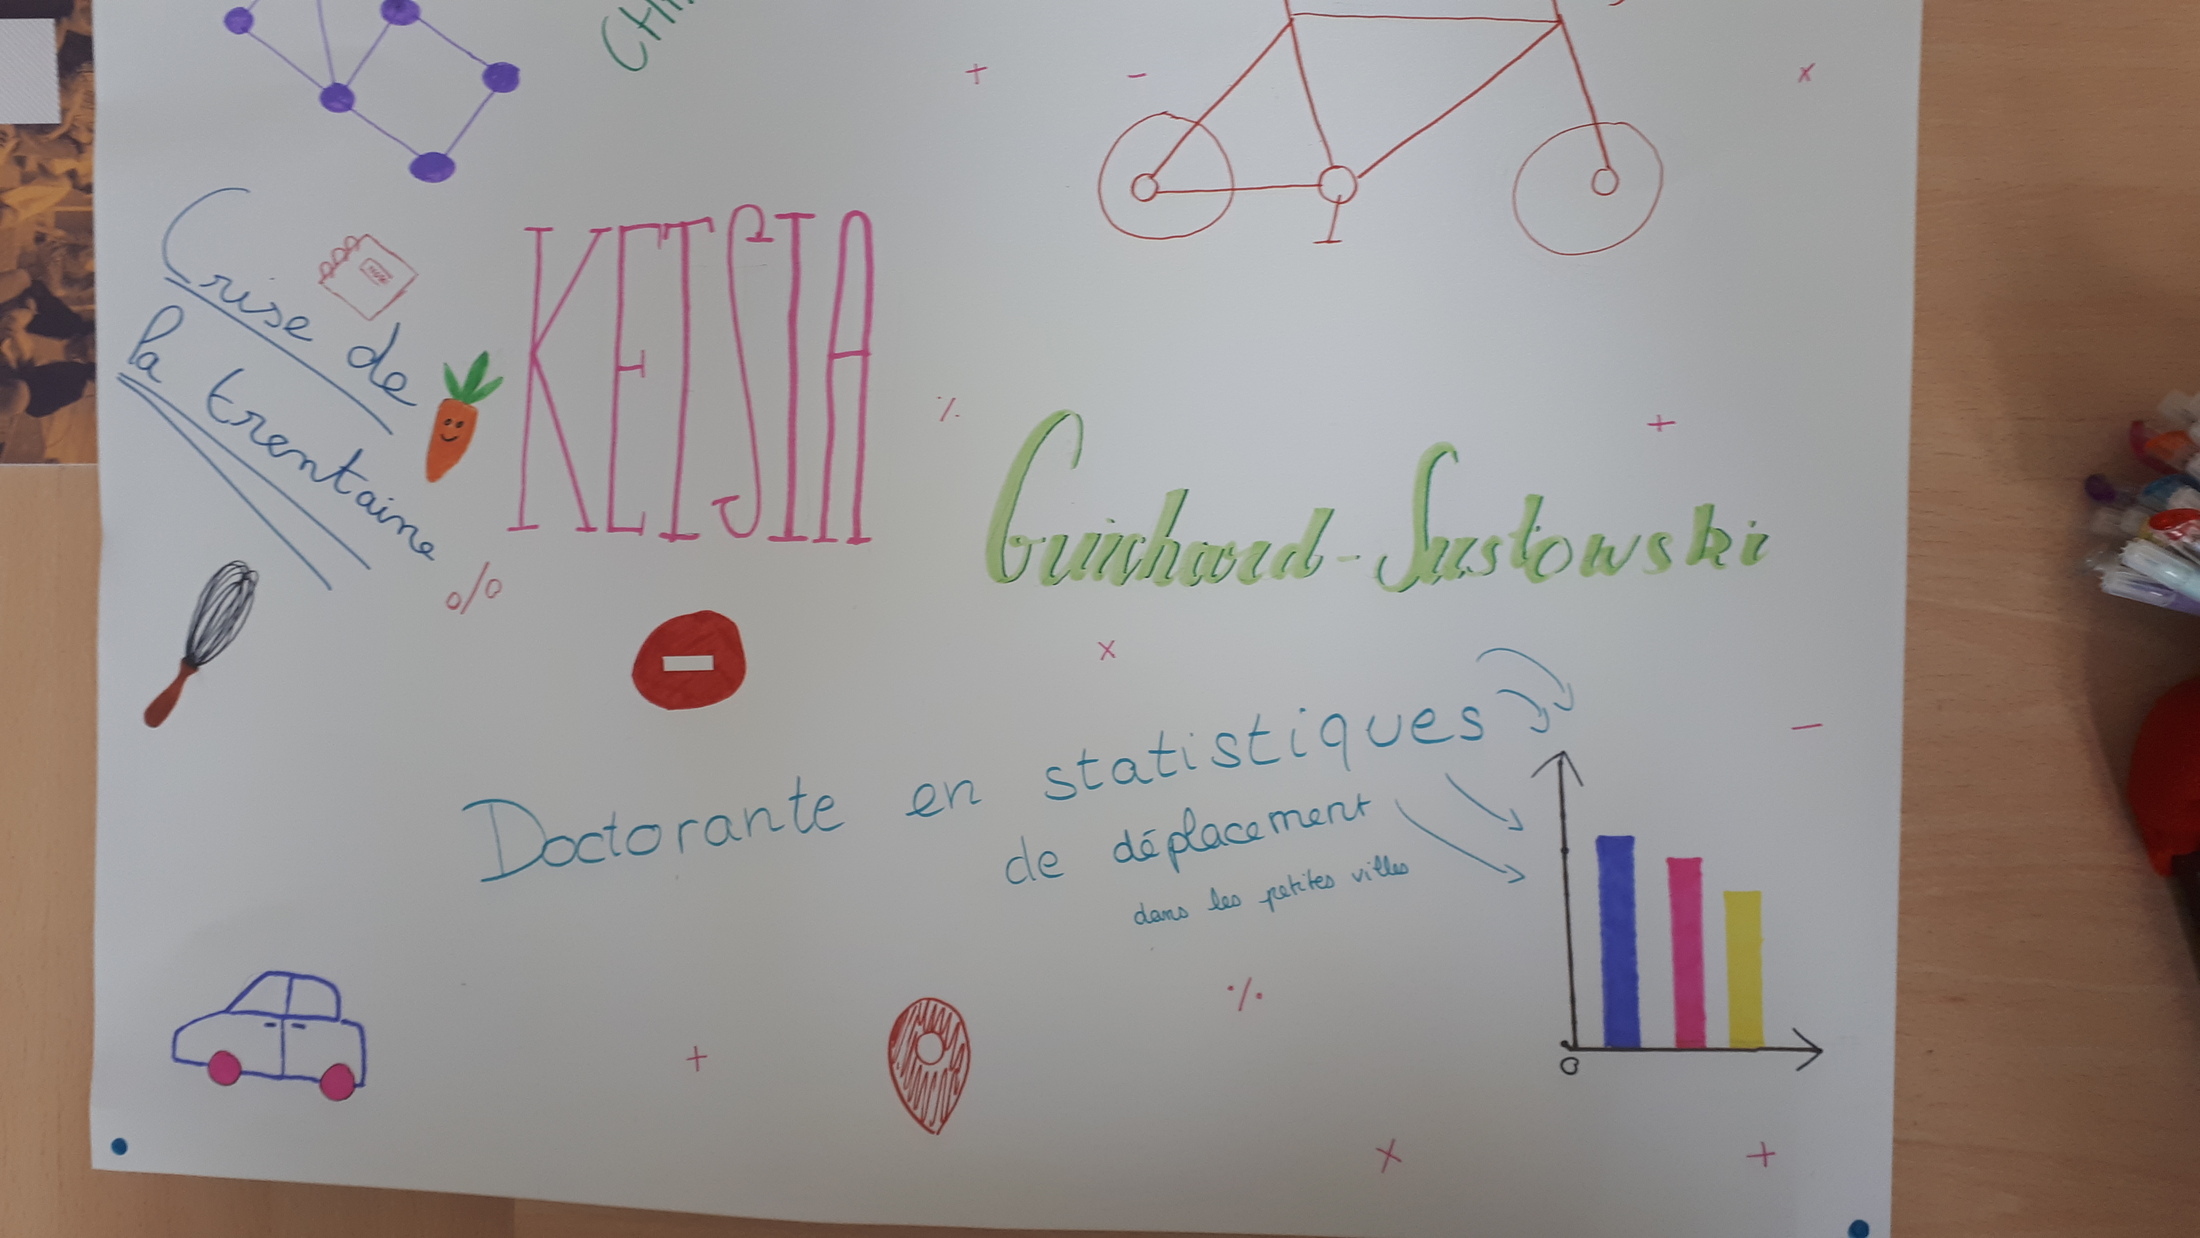 Crise de
la trentaine
KETSIA
Guichard-Sustowski
Doctorante en statistiques
de déplacement
dans les petites villes
0